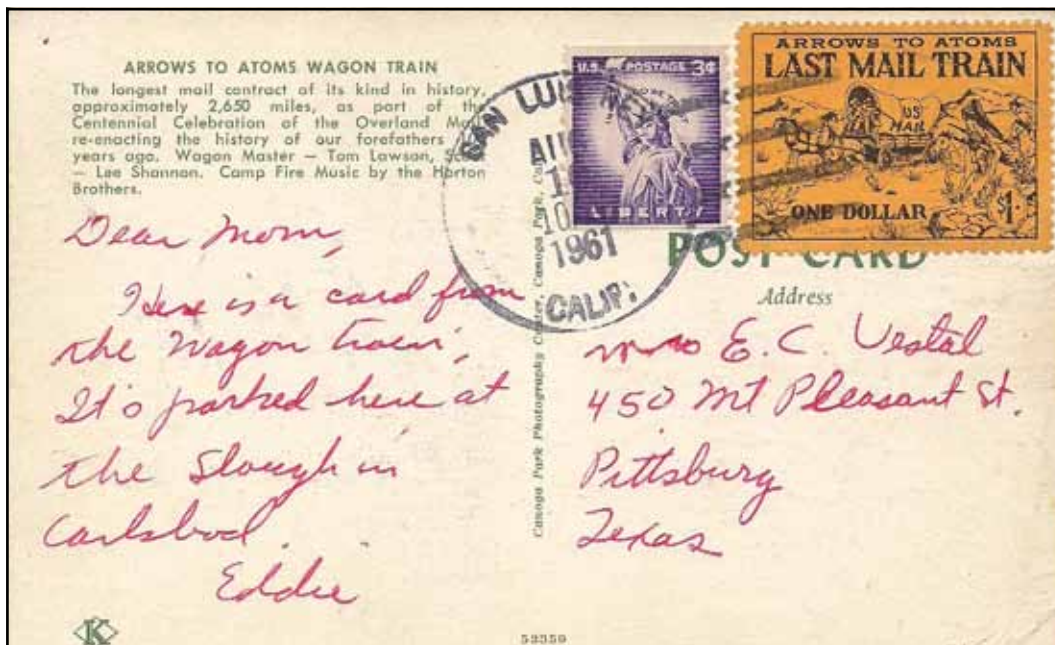 ARROWS TO ATOMS WAGON TRAIN
The longest mail contract of its kind in history,
approximately 2,650 miles, as part of the
Centennial Celebration of the Overland
re-enacting the history of our forefathers
years ago. Wagon Master — Tom Lawson,
— Lee Shannon. Camp Fire Music by the Horton
Brothers.
Dear Mom,
Here is a card from
the Wagon train,
It's parked here at
the Slough in
Carlsbad.
Eddie
K
52359
Canoga Park Photography Center, Canoga Park,
SAN LUIS
AUG
10
1961
CALIF.
U.S. POSTAGE 3¢
LIBERTY
ARROWS TO ATOMS
LAST MAIL TRAIN
US
MAIL
ONE DOLLAR $1
POST CARD
Address
Mrs E. C. Vestal
450 Mt Pleasant St.
Pittsburg
Texas